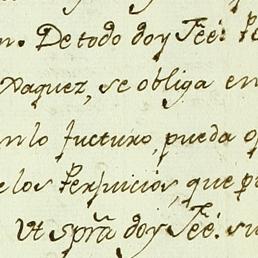 n. De todo doy Feé: Pe
Vaquez, se obliga en
en lo fucturo, pueda o
e los Perjuicios, que p
Vt sprã doy Feé. su